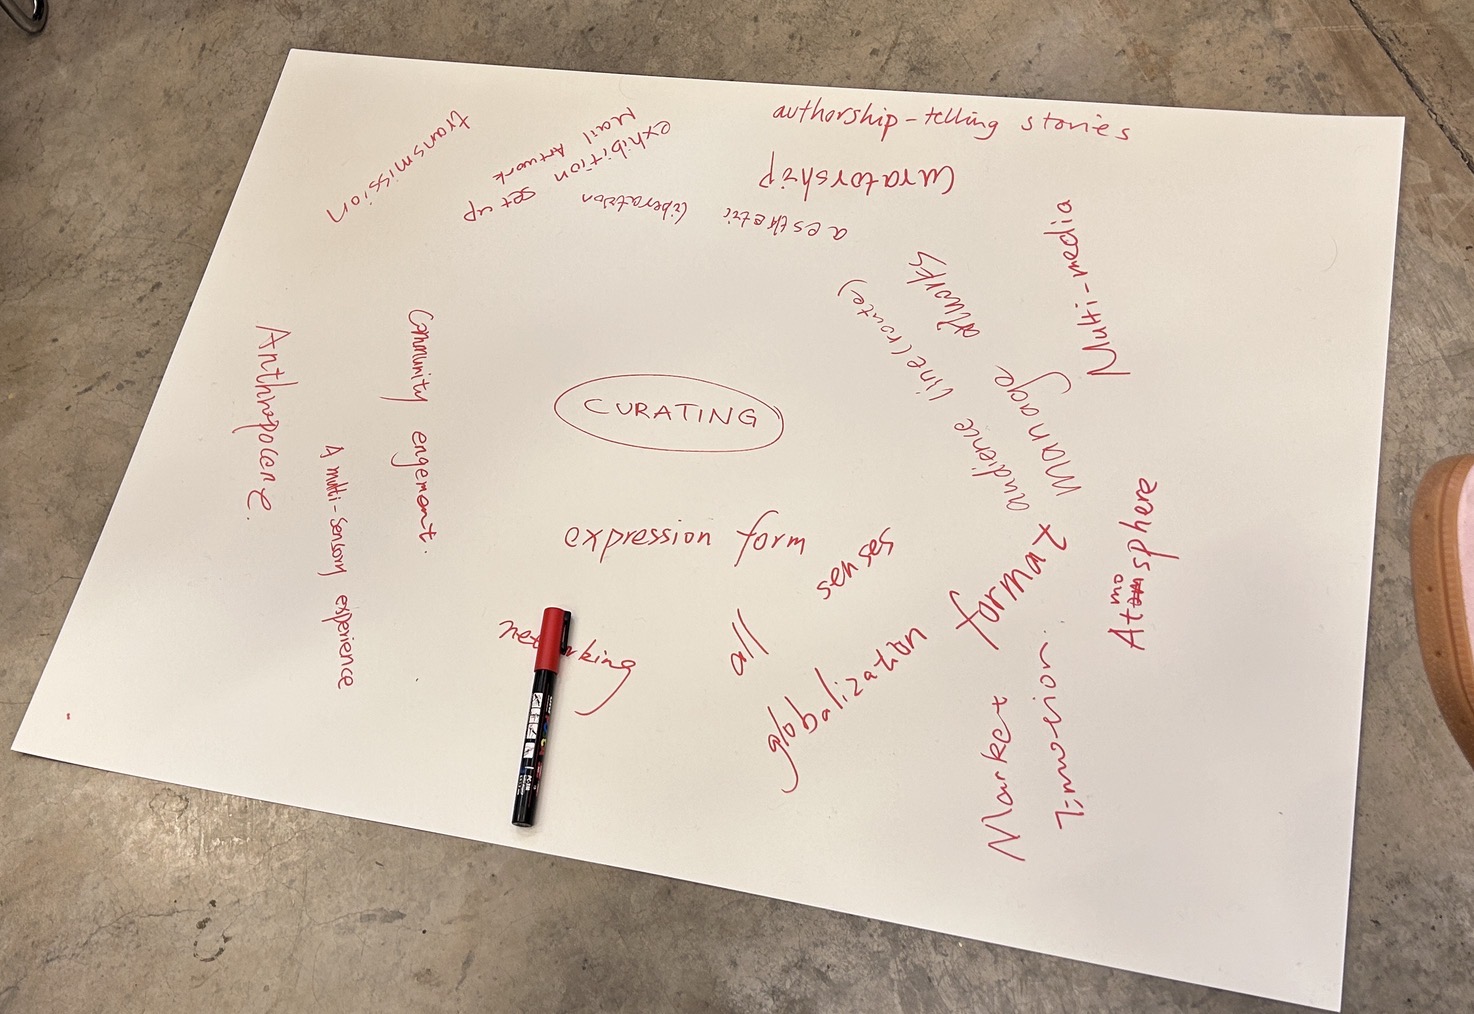 authorship - telling stories
Curatorship
Mail Artwork
exhibition set up
transmission
aesthetic liberation
Multi-media
manage artworks
audience line (route)
CURATING
Community engement.
Anthropocene.
A multi-sensory experience
expression form
all senses
networking
globalization format
Atmosphere
Market